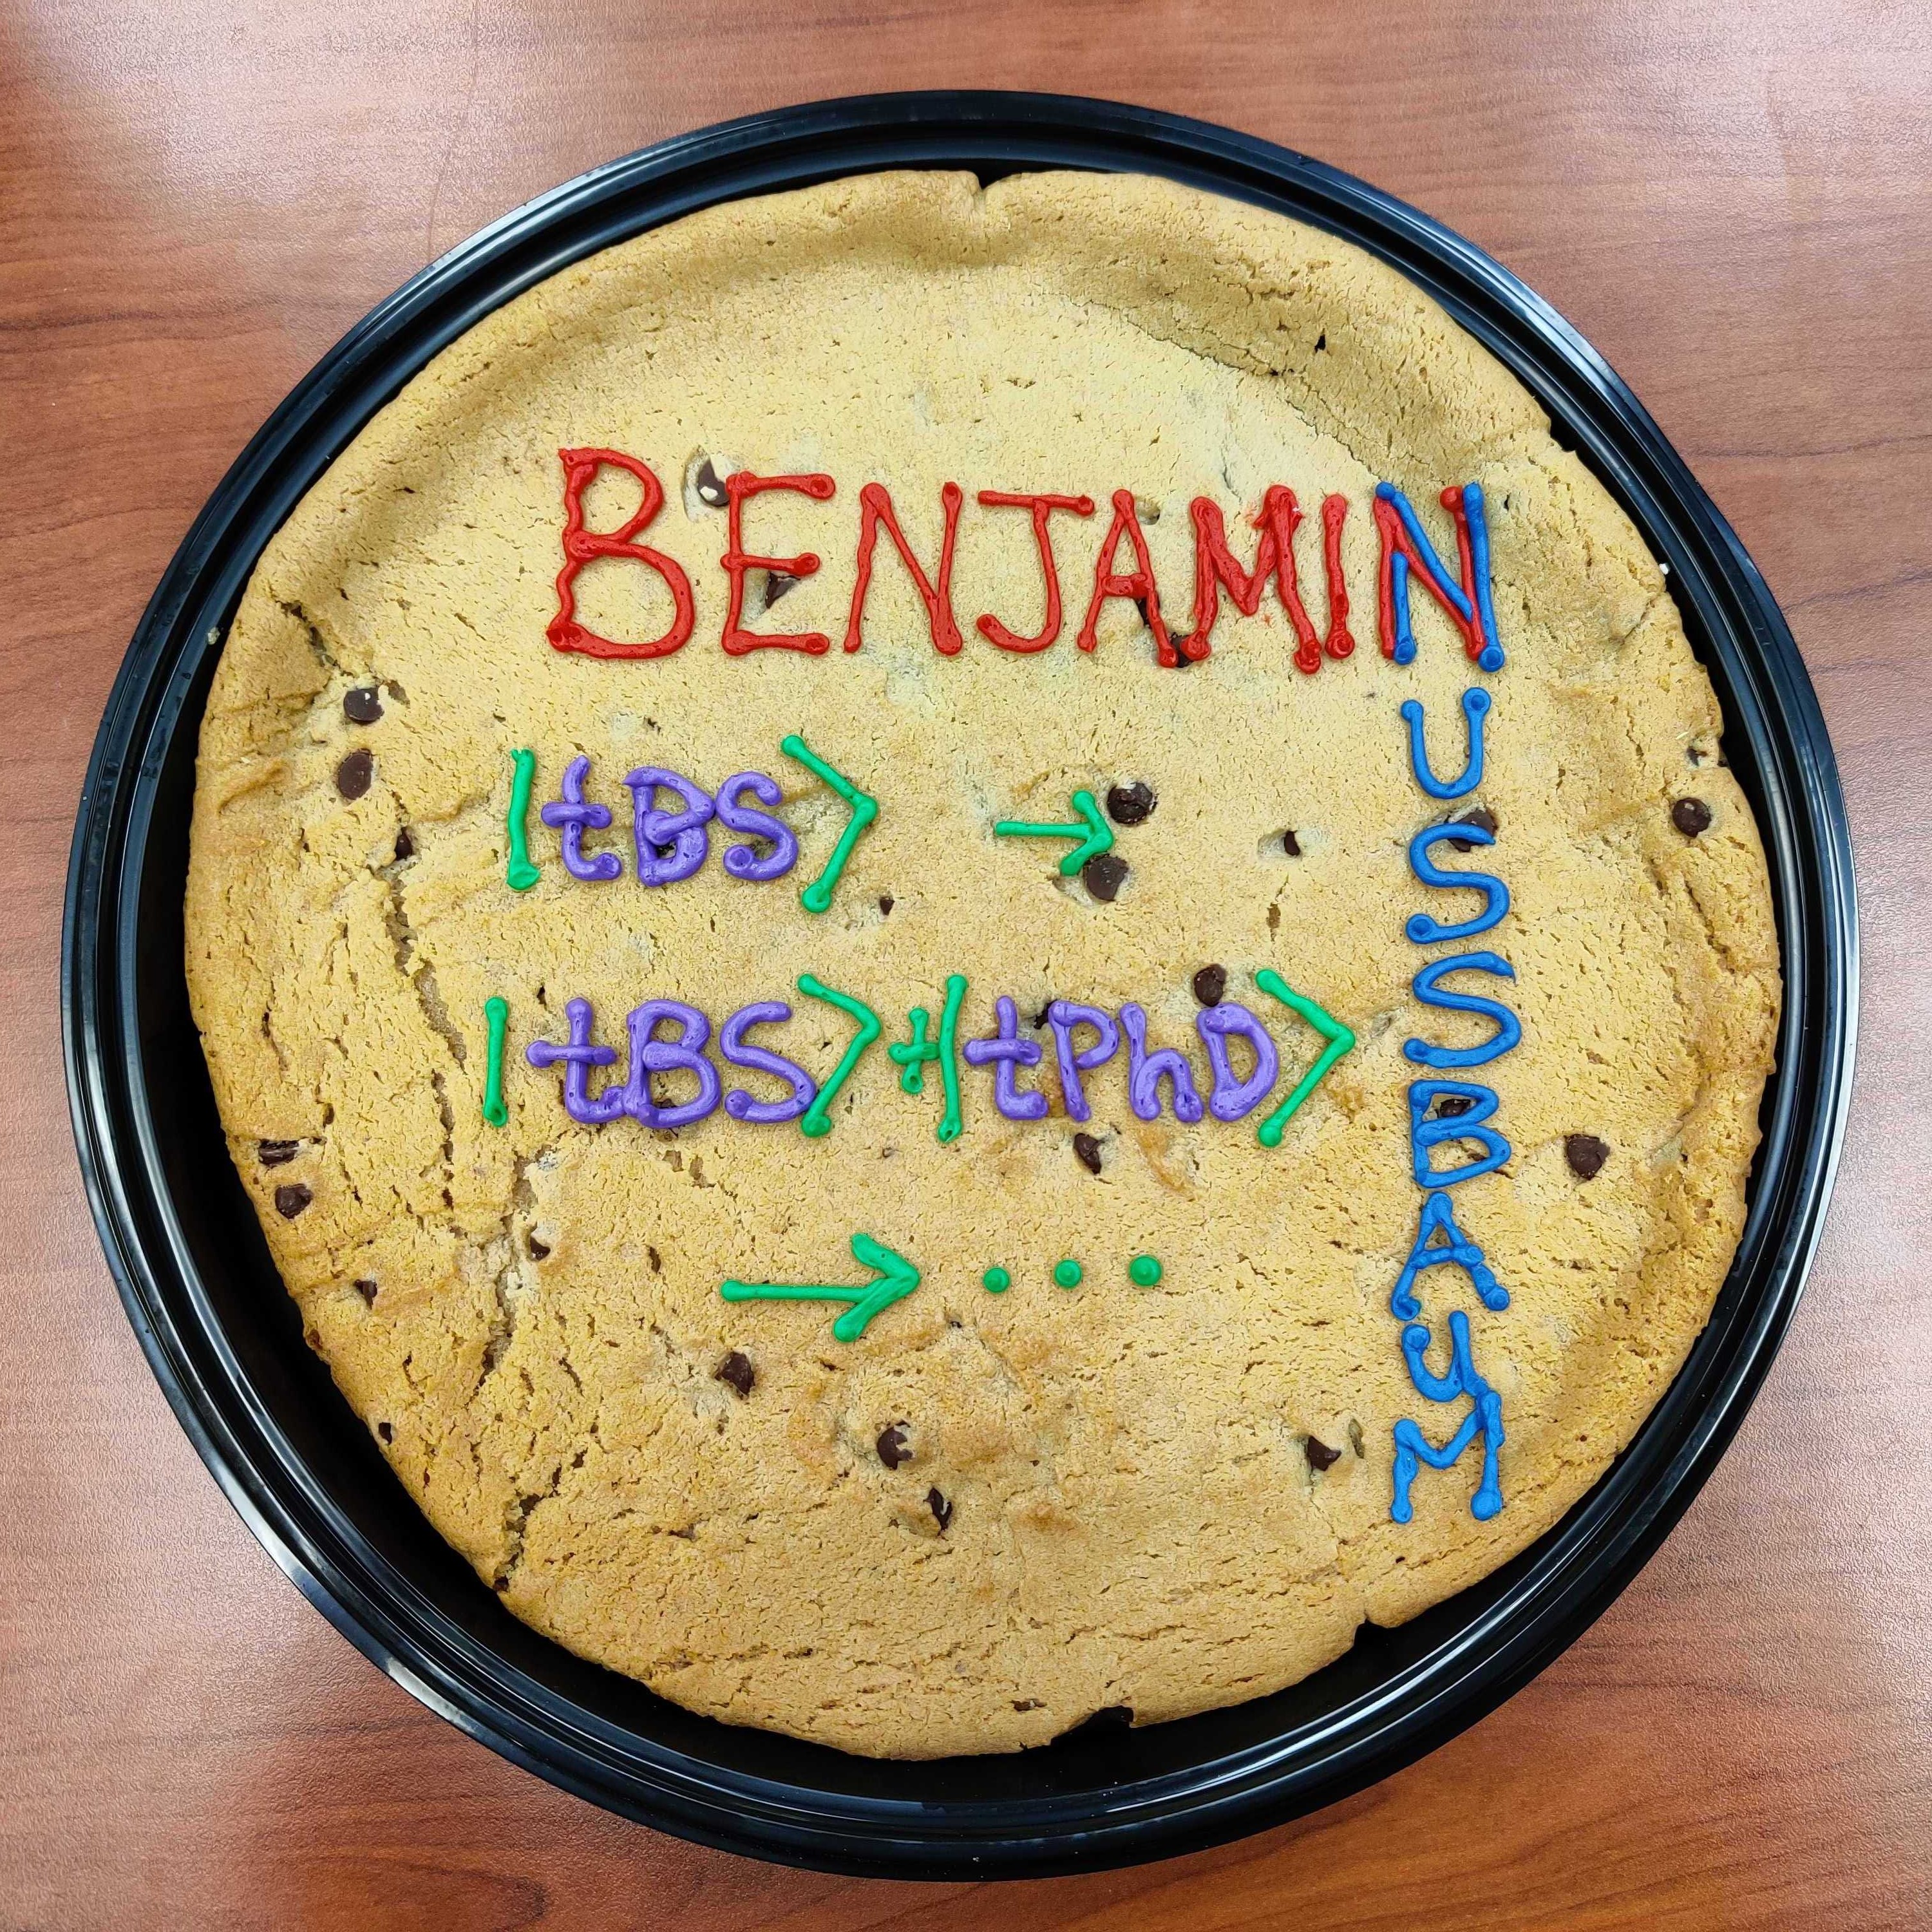 BENJAMIN
NUSSBAUM
|tBS⟩ →
|tBS⟩+|tPhD⟩
→ •••